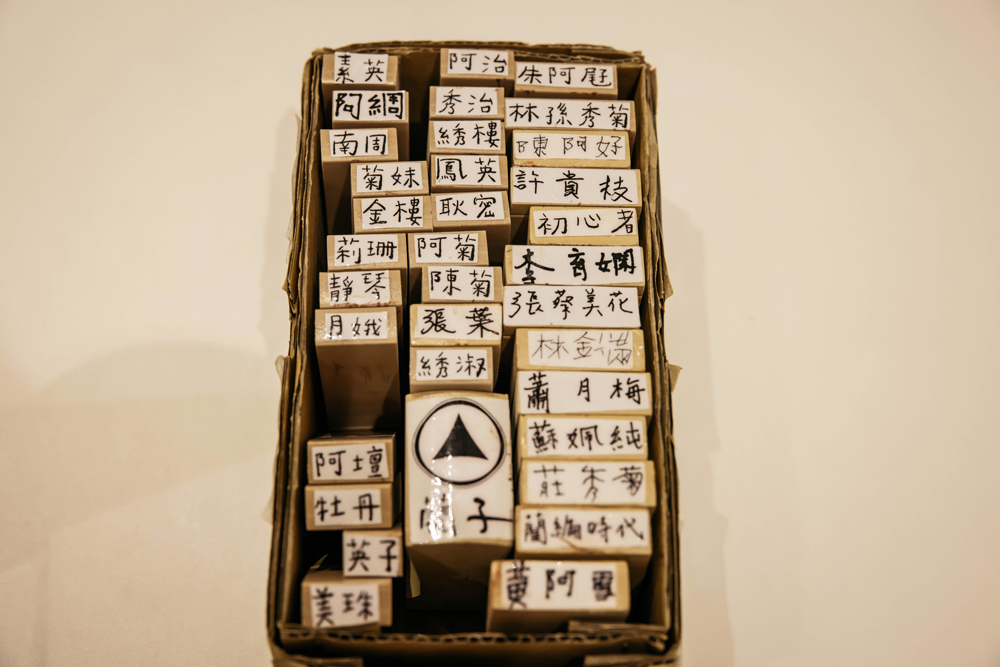 素英
阿綢
南周
菊妹
金樓
莉珊
靜琴
月娥
阿壇
牡丹
英子
美珠
阿治
秀治
綉樓
鳳英
耿密
阿菊
陳菊
張葉
綉淑
子
朱阿尾
林孫秀菊
陳阿好
許貴枝
初心者
李育嫻
張蔡美花
林金滿
蕭月梅
蘇姵純
莊秀菊
蘭編時代
黃阿雪